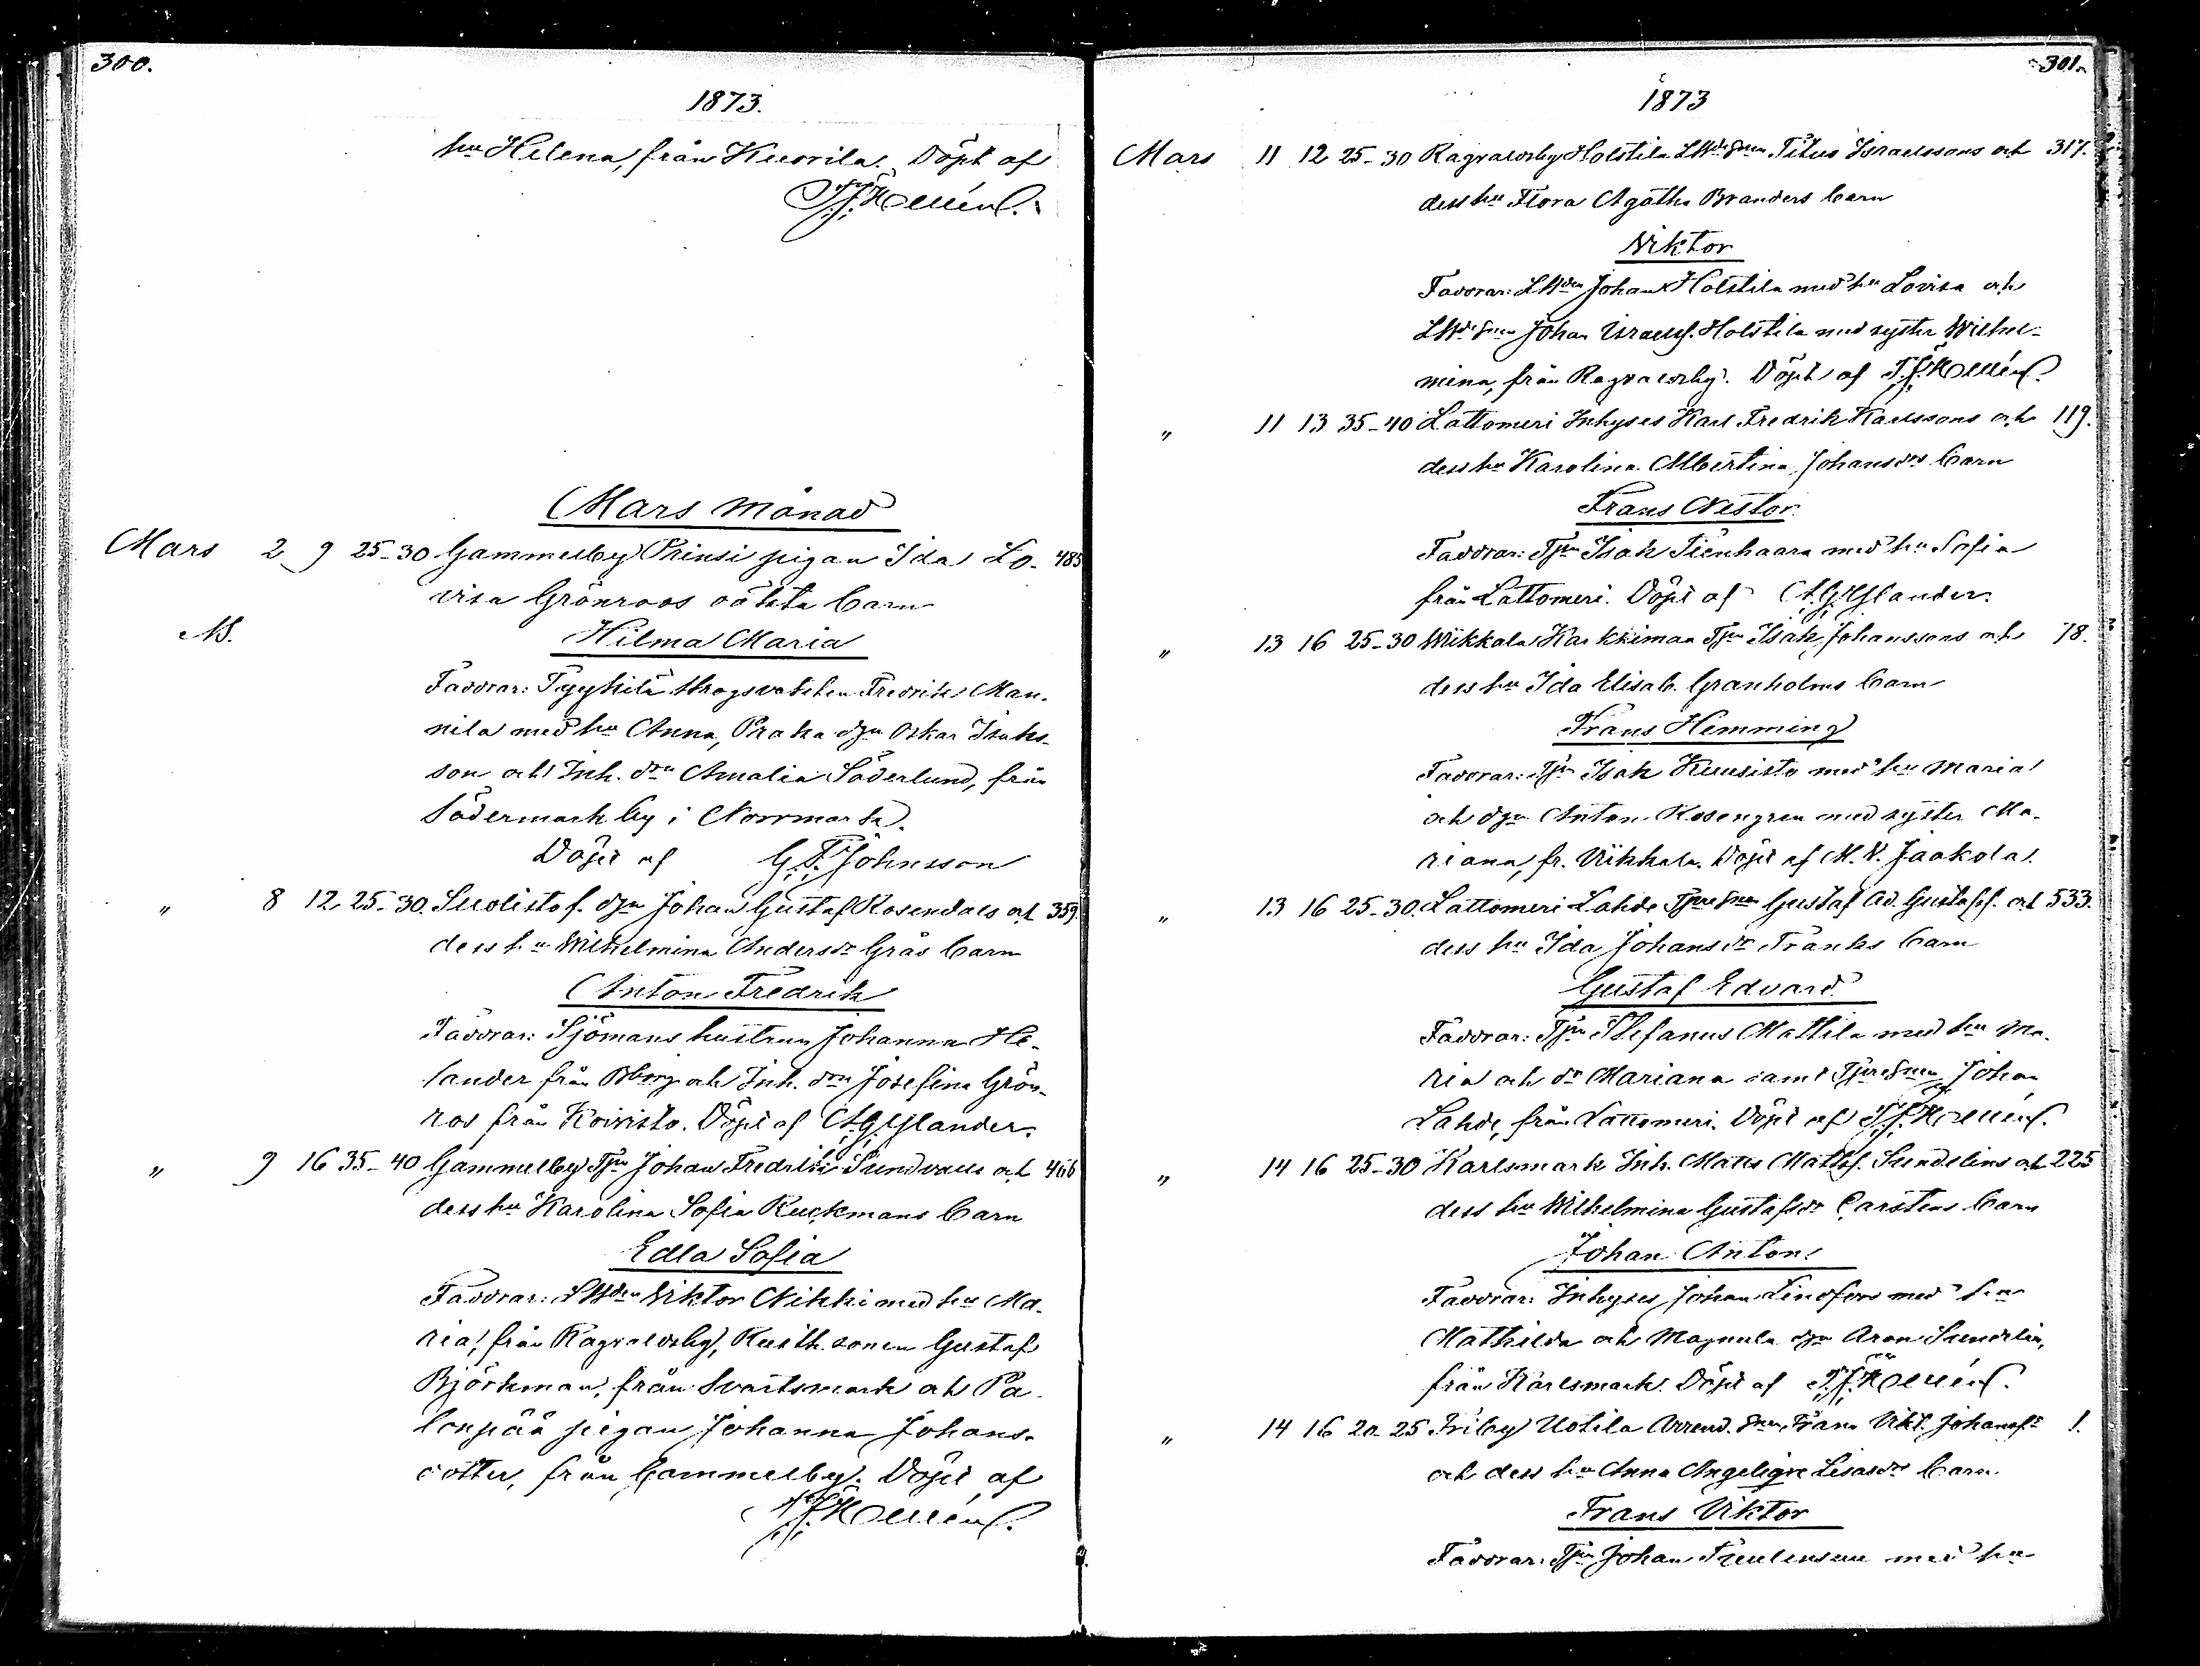 300.
1873.
hu Helena, från Kuorila. Döpt af
Mars månad
Mars 2 9 25-30 Gammelby Prinsi pigan Ida Lo- 485
visa Grönroos oäkta barn
Hilma Maria
Faddrar: Tyykilä skogsvakten Fredrik Man-
nila med hu Anna, Praka dgn Oskar Isaks-
son och Inh. drn Amalia Söderlund, från
Södermark by i Norrmark.
Döpt af G. T. Johnsson
" 8 12 25-30. Suolisto f. dgn Johan Gustaf Rosendals och 359.
dess hu Wilhelmina Andersdr Grås barn
Anton Fredrik
Faddrar: Sjömans hustrun Johanna He-
lander från Bborg och Inh. drn Josefina Grön-
ros från Koivisto. Döpt af A. G. Ylander.
" 9 16 35-40 Gammelby Tpr Johan Fredrik Sundvalls och 466
dess hu Karolina Sofia Ruckmans barn
Edla Sofia
Faddrar: Viktor Nikki med hu Ma-
ria, från Ragvaldsby, Rusth. sonen Gustaf
Björkman, från Svartsmark och Pa-
lonpää pigan Johanna Johans-
dotter, från Gammelby. Döpt af
301.
1873
Mars 11 12 25-30 Ragvaldsby Holstila Titus Israelssons och 317.
dess hu Flora Agatha Branders barn
Viktor
Faddrar: Johan Holstila med hu Lovisa och
Johan Israelss. Holstila med syster Wilhel-
mina, från Ragvaldsby. Döpt af
" 11 13 35-40 Lattomeri Inhyses Karl Fredrik Karlssons och 119.
dess hu Karolina Albertina Johansdrs barn
Frans Nestor.
Faddrar: Tpn Isak Tienhaara med hu Sofia
från Lattomeri. Döpt af A. G. Ylander.
" 13 16 25-30 Wikkala Karkkiman Tpn Isak Johanssons och 78.
dess hu Ida Elisab. Granholms barn
Frans Hemming
Faddrar: Tpn Isak Kuusisto med hu Maria
och dgn Anton Rosengren med syster Ma-
riana, fr. Vikkala. Döpt af M. V. Jaakola.
" 13 16 25-30. Lattomeri Lahde Gustaf Ad. Gustafss. och 533.
dess hu Ida Johansdr Franks barn
Gustaf Edvard
Faddrar: Tpn Stefanus Mattila med hu Ma-
ria och dr Mariana samt Johan
Lahde, från Lattomeri. Döpt af
" 14 16 25-30 Karlsmark Inh. Matts Mattss. Sundelins och 225
dess hu Wilhelmina Gustafsdr Carstens barn
Johan Anton
Faddrar: Inhyses Johan Lindfors med hu
Mathilda och Magnula dgn Aron Sundelin,
från Karlsmark. Döpt af
" 14 16 20-25 Friby Uotila Arrend. Frans Vikt. Johanss. 1.
och dess hu Anna Angelique Lisasdrs barn
Frans Viktor
Faddrar: Tpn Johan med hu